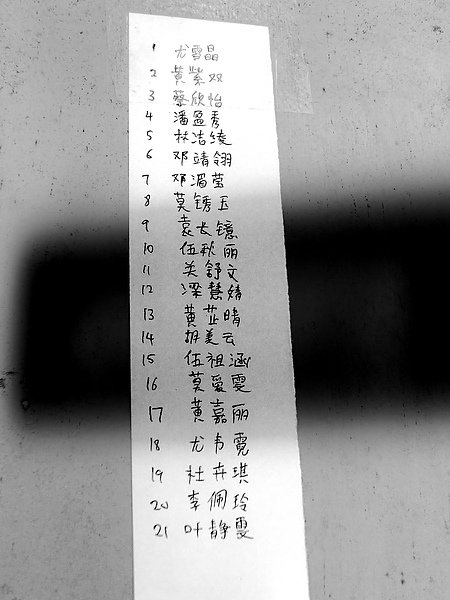 1 尤雪晶
2 黄紫双
3 蔡欣怡
4 潘盈秀
5 林洁绫
6 邓靖翎
7 邓湄莹
8 莫锈玉
9 袁长镱
10 伍秋丽
11 关舒文
12 梁慧婧
13 黄芷晴
14 胡美云
15 伍祖涵
16 莫爱雯
17 黄嘉丽
18 尤韦霓
19 杜卉琪
20 李佩玲
21 叶静雯